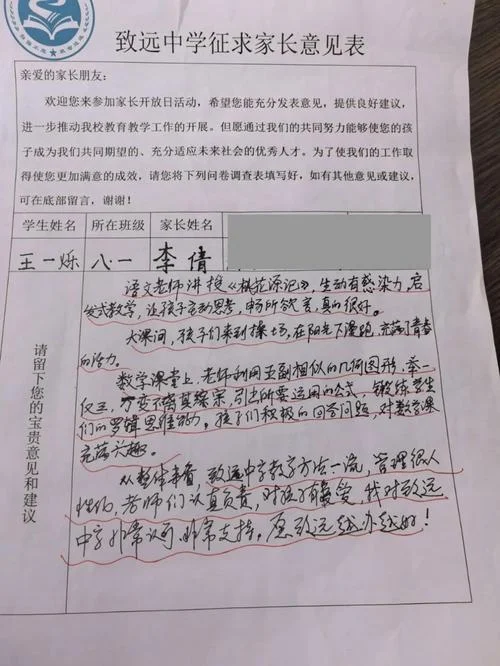 致远中学征求家长意见表
亲爱的家长朋友：
欢迎您来参加家长开放日活动，希望您能充分发表意见，提供良好建议，
进一步推动我校教育教学工作的开展。但愿通过我们的共同努力能够使您的孩
子成为我们共同期望的、充分适应未来社会的优秀人才。为了使我们的工作取
得使您更加满意的成效，请您将下列问卷调查表填写好，如有其他意见或建议，
可在底部留言，谢谢！
学生姓名 所在班级 家长姓名
王一烁 八一 李倩
请留下您的宝贵意见和建议
语文老师讲授《桃花源记》，生动有感染力，启
发式教学，让孩子主动思考，畅所欲言，真的很好。
大课间，孩子们来到操场，在阳光下漫跑，充满青春
的活力。
数学课堂上，老师利用五副相似的几何图形，举一
反三，万变不离其综宗，引出所要运用的公式，锻练学生
们的逻辑思维能力。孩子们积极的回答问题，对数学课
充满兴趣。
从整体来看，致远中学教学方法一流，管理很人
性化，老师们认真负责，对孩子有爱，我对致远
中学非常认可，非常支持。愿致远越办越好！